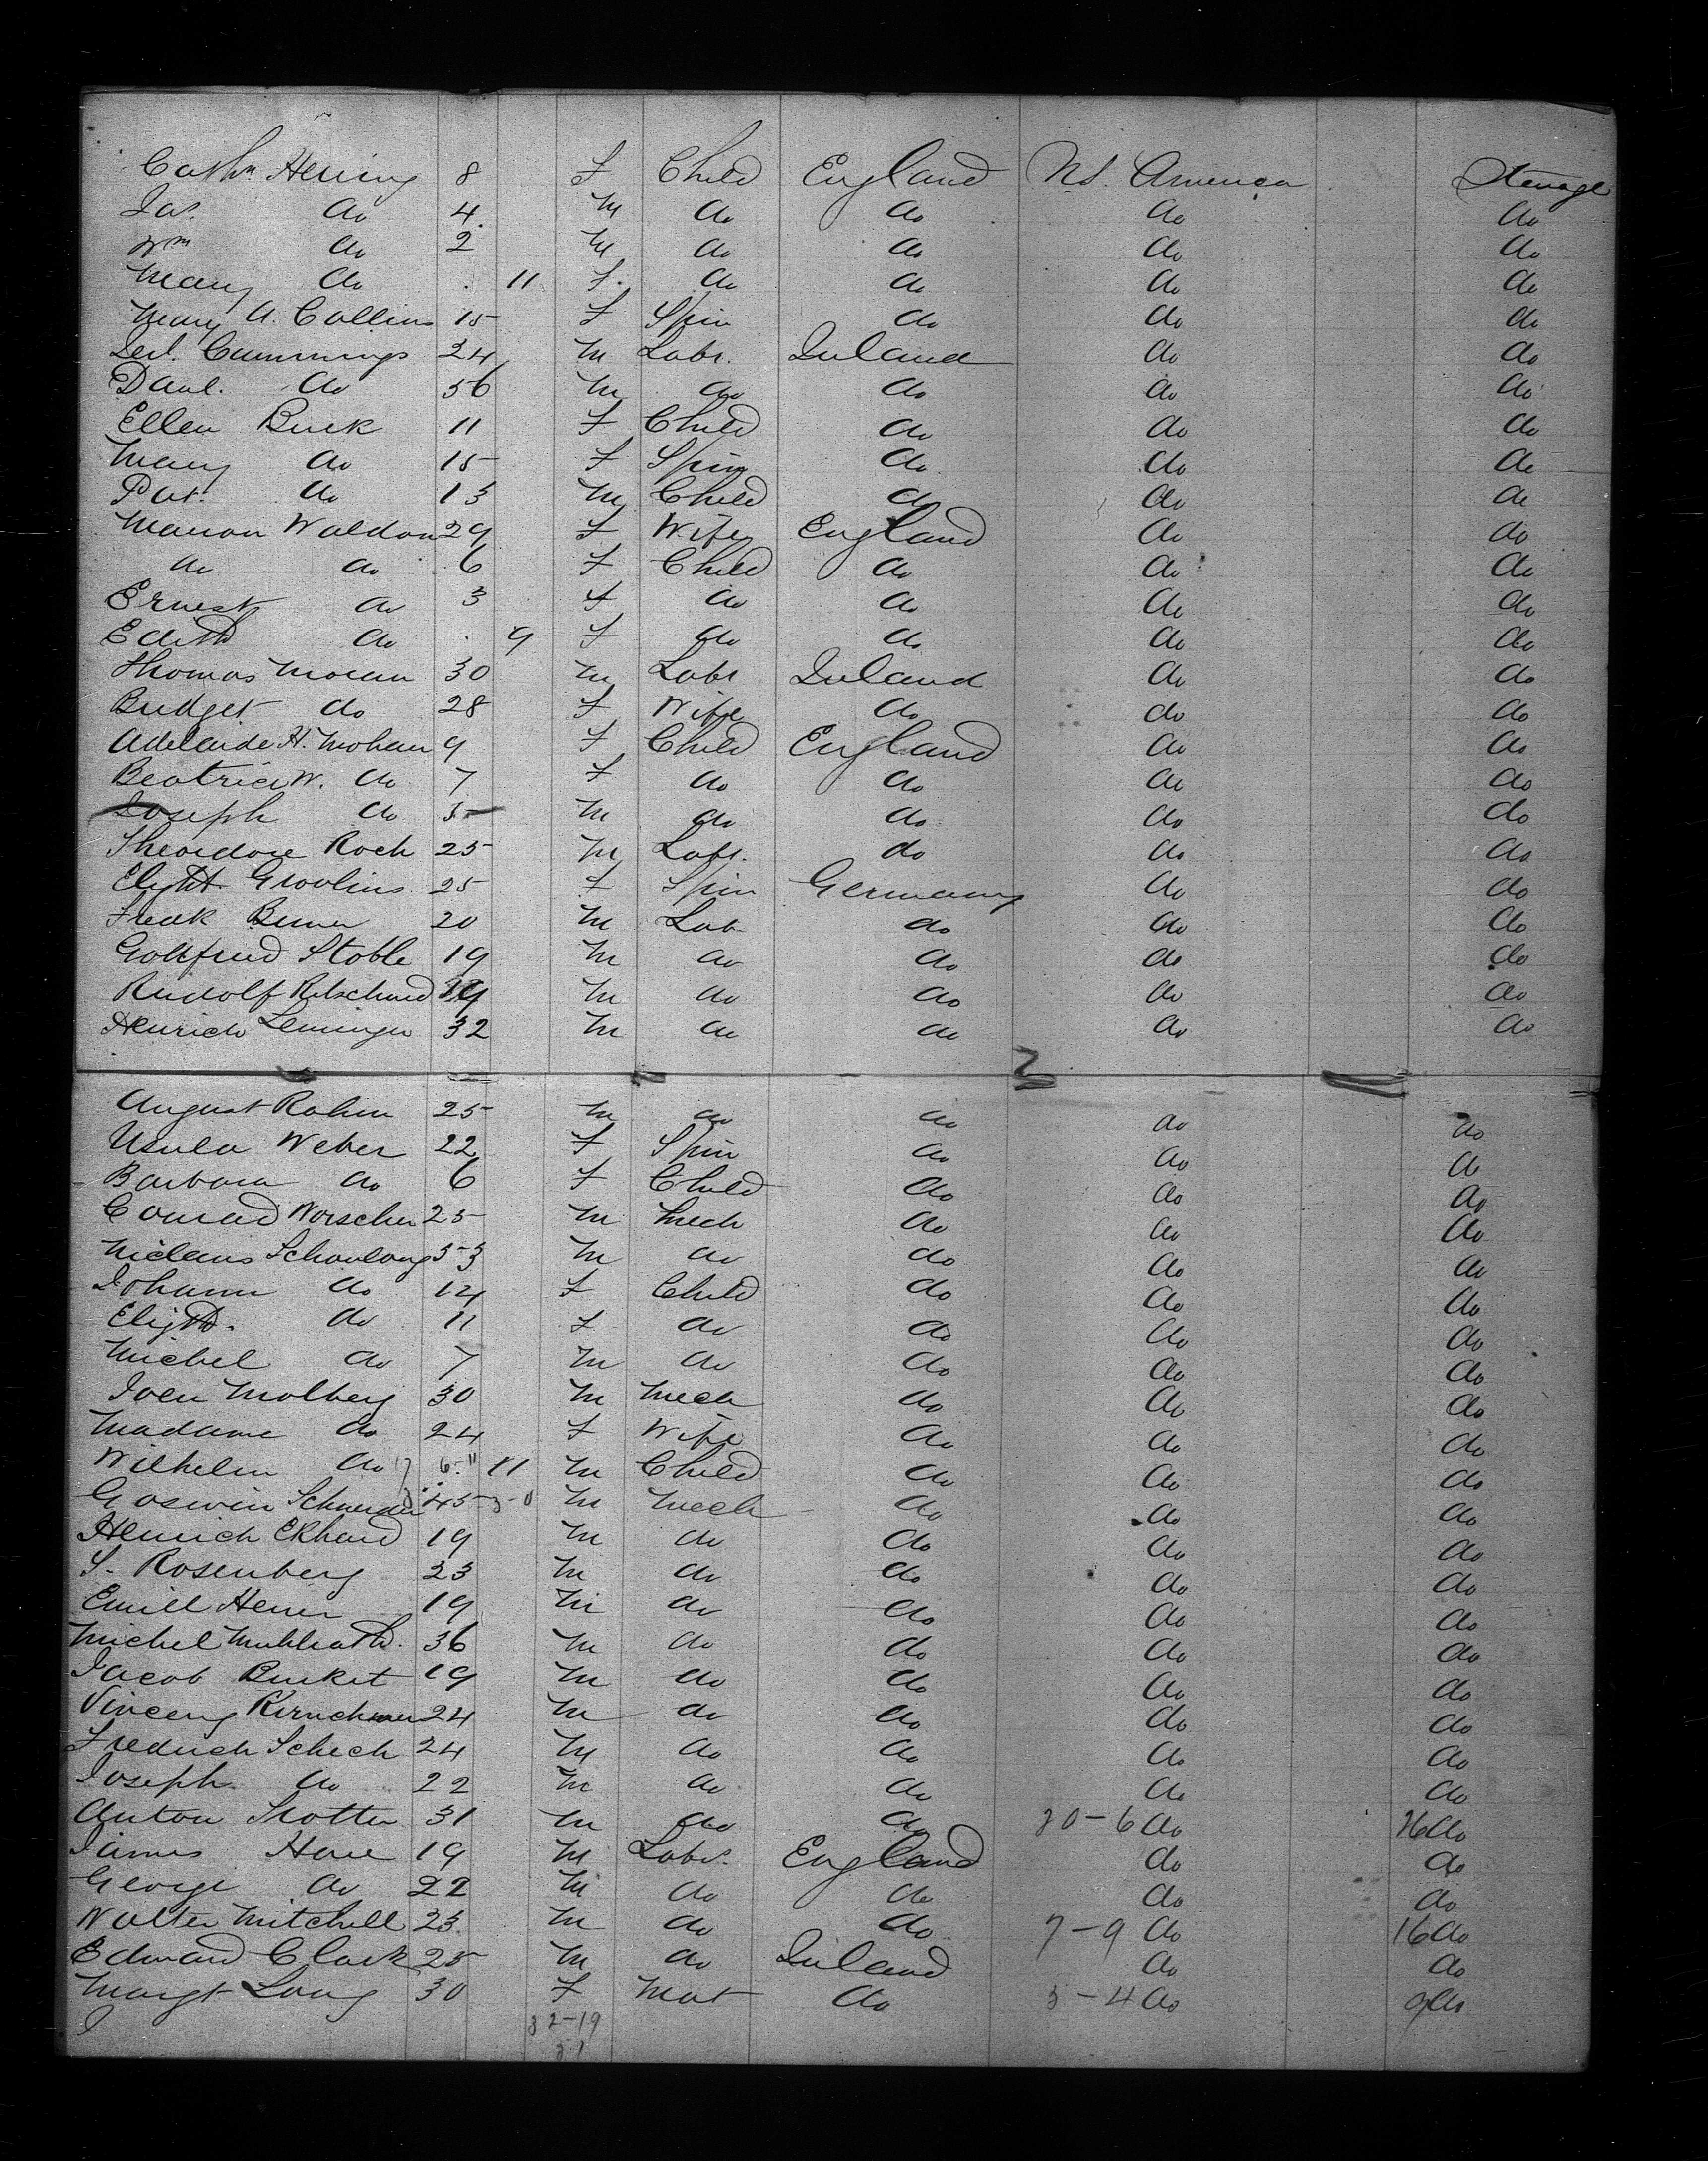 Cathn Hening 8 F Child England Nd. America Sterage
Jas. do 4 M do do do do
Wm do 2 M do do do do
Mary do . 11 F. do do do do
Mary A. Collins 15 F Spin do do do
Jerl. Cummings 24 M Labr. Ireland do do
Danl. do 56 M do do do do
Ellen Burk 11 F Child do do do
Mary do 15 F Spin do do do
Pat. do 13 M Child do do do
Marion Waldon 29 F Wife England do do
do do 6 F Child do do do
Ernest do 3 F do do do do
Edith do . 9 F do do do do
Thomas Moran 30 M Labr Ireland do do
Bridget do 28 F Wife do do do
Adelaide H. Mohan 9 F Child England do do
Beatrice W. do 7 F do do do do
Joseph do 5 M do do do do
Theordore Roch 25 M Labr. do do do
Elizth 25 F Spin Germany do do
20 M Lab do do do
Gottfried Stoble 19 M do do do do
Rudolf M do do do do
Henrich Leminger 32 M do do do do
August Rohm 25 M do do do do
Usula Weber 22 F Spin do do do
Barbara do 6 F Child do do do
Conrad Worscher 25 M Mech do do do
Niclaus Schonlong 53 M do do do do
Johann do 14 F Child do do do
Elizth. do 11 F do do do do
Michel do 7 M do do do do
Molberg 30 M Mech do do do
Madame do 24 F Wife do do do
Wilhelm do 11 M Child do do do
Goswin Schneider 45 M Mech do do do
Henrich Ekhard 19 M do do do do
S. Rosenberg 23 M do do do do
Emill 19 M do do do do
Michel 36 M do do do do
Jacob Burket 19 M do do do do
Vinceny 24 M do do do do
Fredrich Schech 24 M do do do do
Joseph do 22 M do do do do
Anton Stotter 31 M do do 30-6 do 26 do
James Hare 19 M Labr. England do do
George do 22 M do do do do
Walter Mitchell 23 M do do 7-9 do 16 do
Edward Clark 25 M do Ireland do do
Margt Long 30 F Mat do 5-4 do 9 do
32-19
51